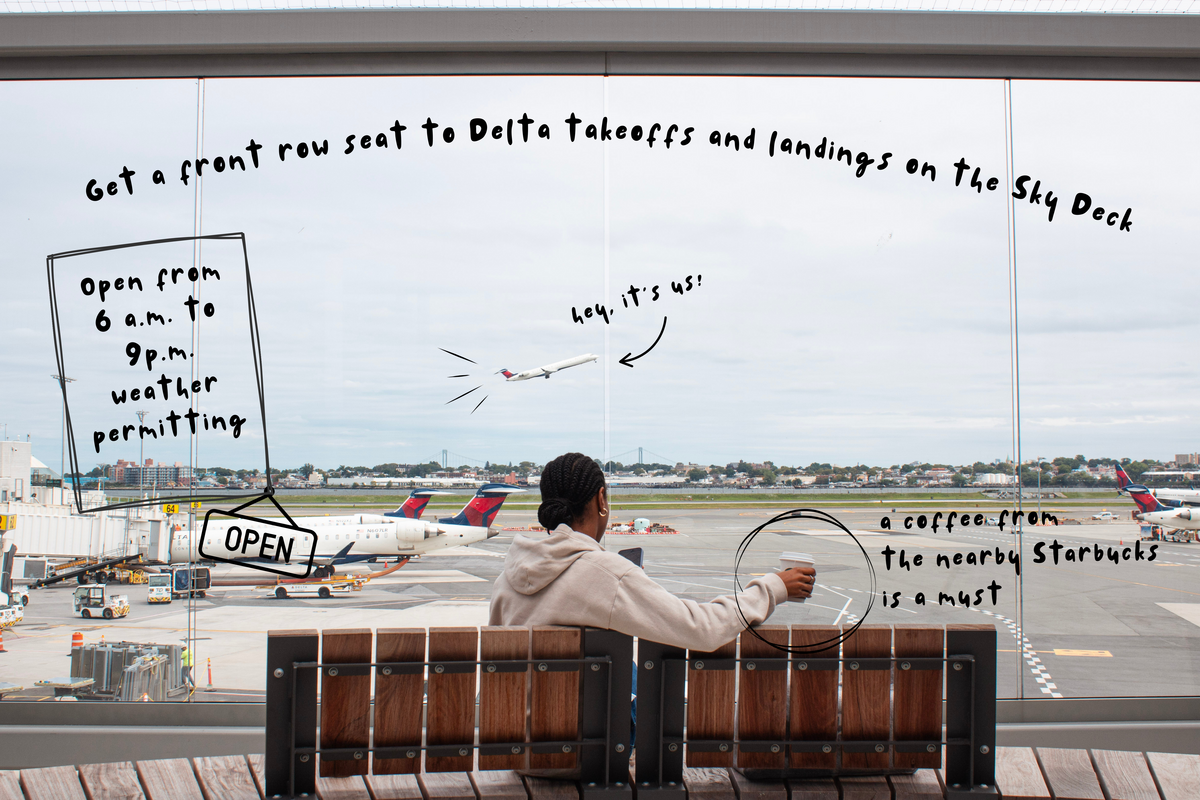 Get a front row seat to Delta takeoffs and landings on the Sky Deck
Open from
6 a.m. to
9p.m.
weather
permitting
OPEN
hey, it's us!
a coffee from
the nearby Starbucks
is a must
64